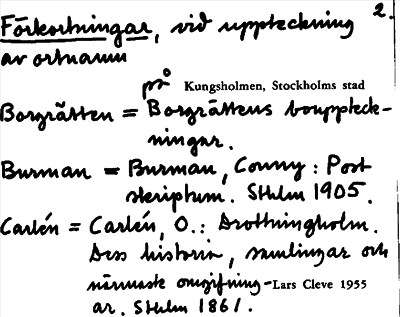 2.
Förkortningar, vid uppteckning
av ortnamn
på Kungsholmen, Stockholms stad
Borgrätten = Borgrättens bouppteck-
ningar.
Burman = Burman, Conny: Post
skriptum. Sthlm 1905.
Carlén = Carlén, O.: Drottningholm.
Dess historia, samlingar och
närmaste omgifning-Lars Cleve 1955
ar. Sthlm 1861.